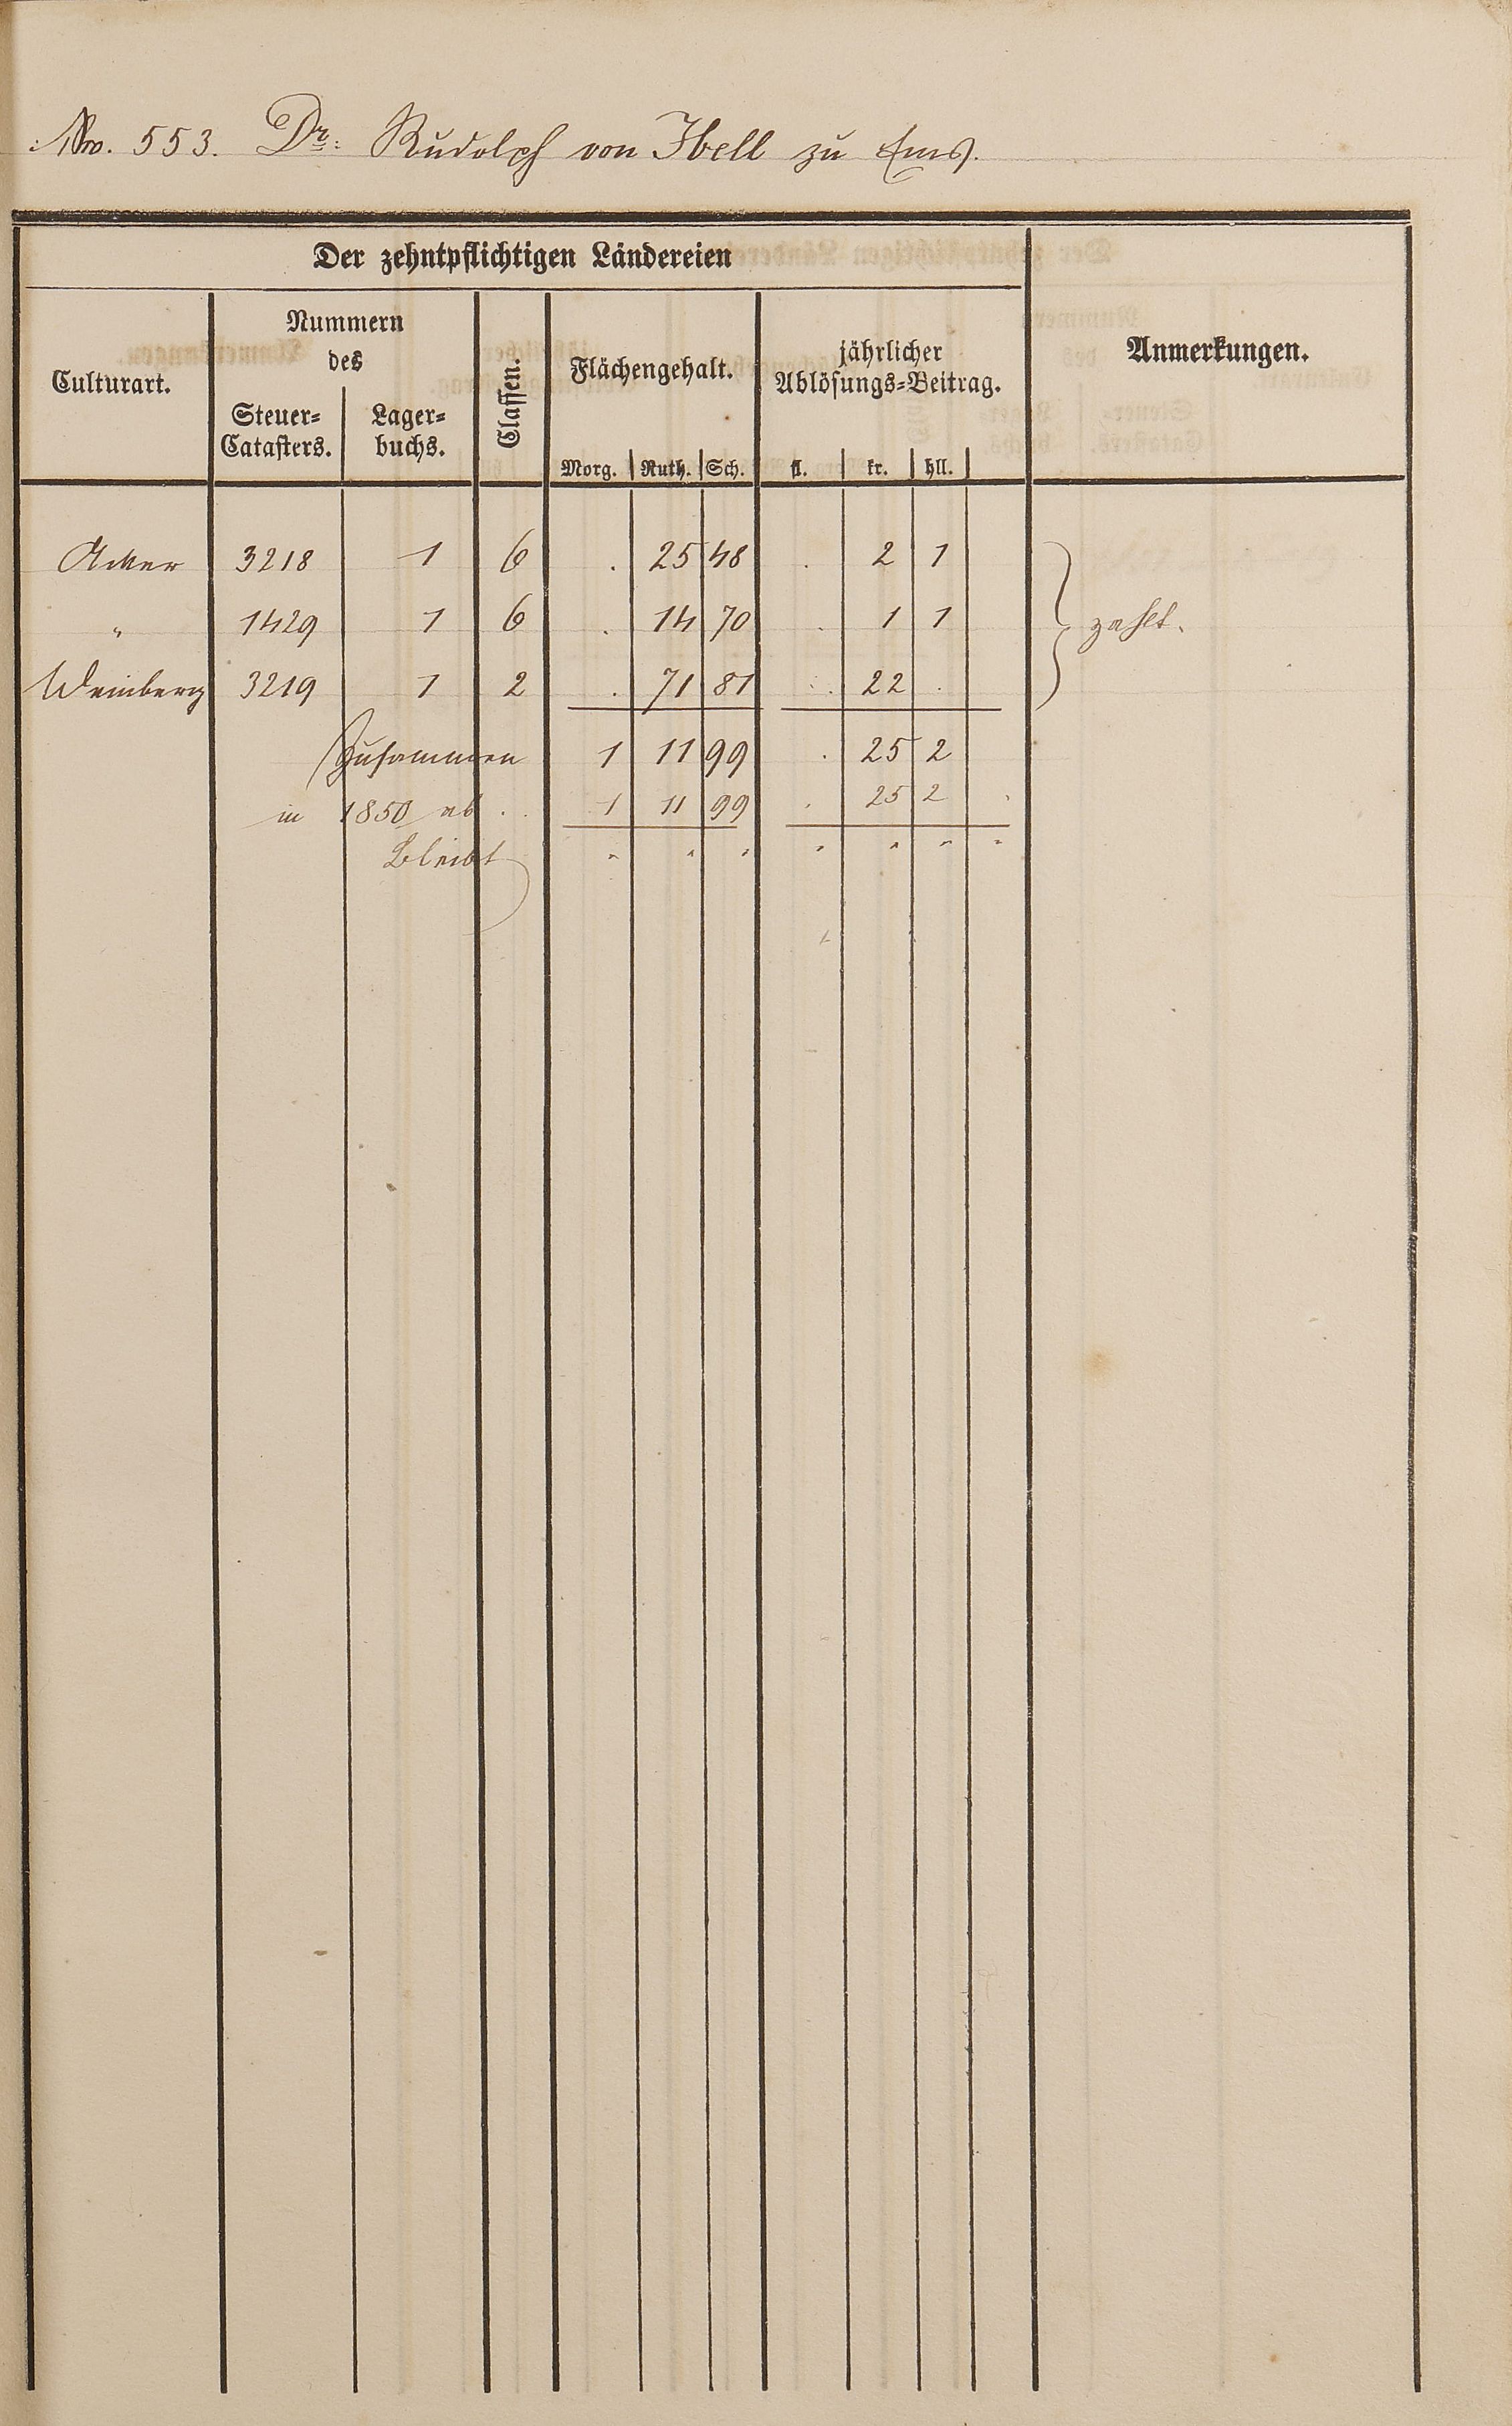 No. 553. Dr: Rudolph von Ibell zu Ems.
Der zehntpflichtigen Ländereien
Anmerkungen.
Culturart.
Nummern
des
Steuer-
Catasters.
Lager-
buchs.
Classen.
Flächengehalt.
Morg. Ruth. Sch.
jährlicher
Ablösungs-Beitrag.
fl. kr. hll.
Acker 3218 1 6 . 25 48 . 2 1
" 1429 1 6 . 14 70 . 1 1 } zahlt.
Weinberg 3219 1 2 . 71 81 . 22 .
Zusammen 1 11 99 . 25 2
in 1850 ab . . 1 11 99 . 25 2
Bleibt " " " " " " "